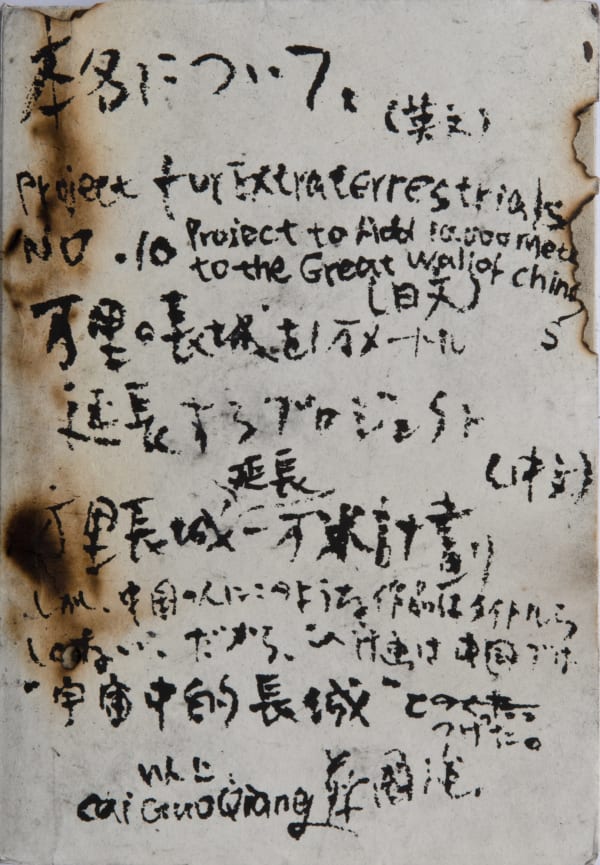 本名について。
(英文)
Project fur Extraterrestrials
NO .10 Project to Add 10.000 mete
to the Great Wall of China
(日文)
万里の長城を1万メートル
S
延長するプロジェクト
(中文)
延長
万里長城一万米計劃
しかし、中国の人にこのような作品はタイトルら
しくない、だから、この計画は中国では
"宇宙中的長城"と
つけた。
以上、
Cai Guo Qiang 蔡國強